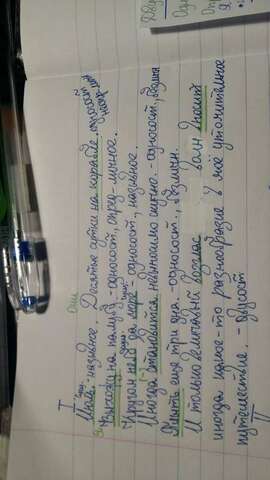 I
они
Июль. - назывное. Десятые сутки на корабле. односост
Выхожу на палубу. - односост, опред-личное.
Кругом небо да море - односост., назывное.
Иногда становится невыносимо скучно. - односост., безличн
Плыть еще три дня. - односост., безличн.
И только величавый возглас волн вносит
иногда какое-то разнообразие в моё утомительное
путешествие. - двусост
II